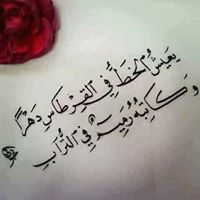 يعيش الخط في القرطاس دهراً
وكاتبه رميم في التراب